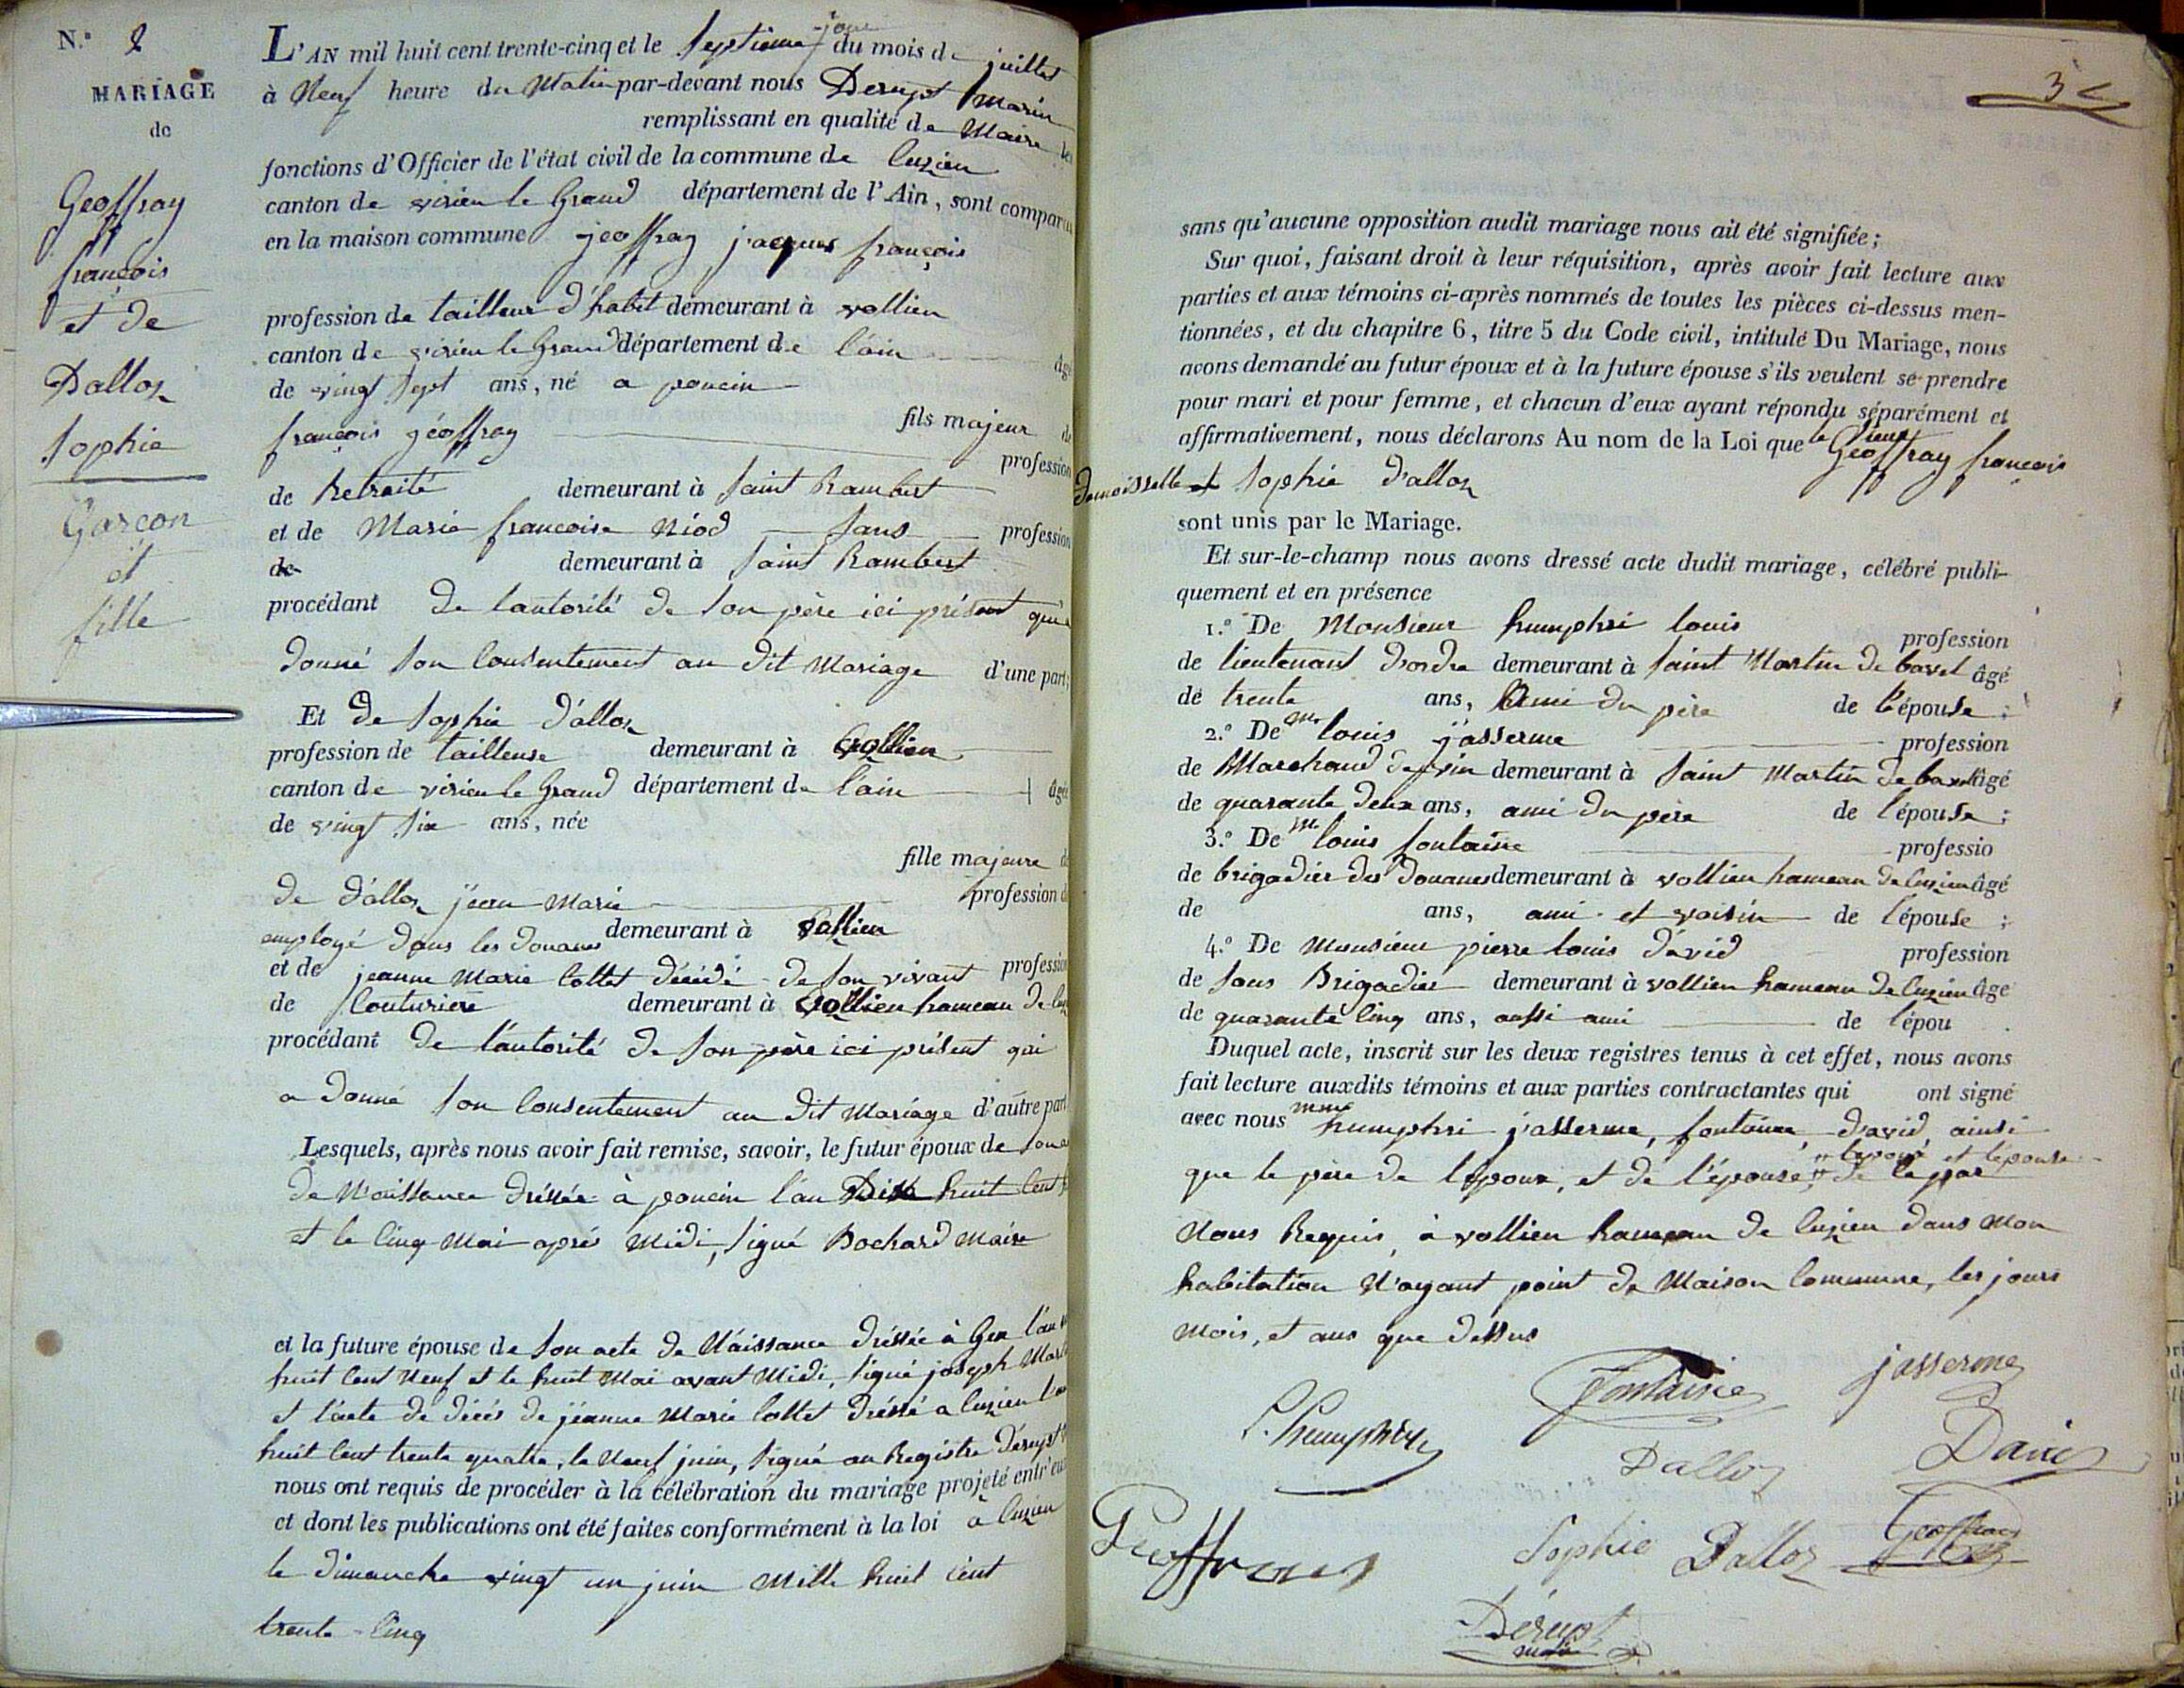 N.° 2
MARIAGE
de
Geoffray
françois
et de
Dalloz
Sophie
Garcon
et
fille
L'AN mil huit cent trente-cinq et le Septieme jour du mois de juillet
à Neuf heure du Matin par-devant nous Derupt Marin
remplissant en qualité de Maire les
fonctions d'Officier de l'état civil de la commune de luzieu
canton de virieu le Grand département de l'Ain, sont comparus
en la maison commune geoffray jacques françois
profession de tailleur d'habit demeurant à vollien
canton de virieu le Grand département de l'ain âgé
de vingt Sept ans, né a poncin
fils majeur de
françois géoffray profession
de Retraité demeurant à Saint Rambert
et de Marie françoise Niod Sans profession
de demeurant à Saint Rambert
procédant de lautorité de Son père ici présent qui a
donné Son Consentement au dit Mariage d'une part;
Et de Sophie d'alloz
profession de tailleuse demeurant à vollien
canton de virieu le Grand département de l'ain âgée
de vingt Six ans, née
fille majeure de
de d'alloz jean Marie profession de
employé dans les douanes demeurant à vollien
et de jeanne Marie Collet décédé de Son vivant profession
de Couturiere demeurant à vollien hameau de
procédant de l'autorité de Son père ici présent qui
a donné Son Consentement au dit Mariage d'autre part
Lesquels, après nous avoir fait remise, savoir, le futur époux de Son
de Naissance dréssée à poncin l'an Dix huit Cent
et le Cinq Mai aprés Midi, Signé Bochard Maire
et la future épouse de Son acte de Náissance dréssée à Gex l'an
huit Cent Neuf et le huit Mai avant Midi, Signé joseph
et l'acte de décés de jéanne Marie Collet dréssé a luzieu l'an
huit Cent trente quatre, le Neuf juin, Signé au Registre dérupt
nous ont requis de procéder à la célébration du mariage projeté entr'eux
et dont les publications ont été faites conformément à la loi à luzieu
le dimanche vingt un juin Mille huit Cent
trente-Cinq
sans qu'aucune opposition audit mariage nous ait été signifiée;
Sur quoi, faisant droit à leur réquisition, après avoir fait lecture aux
parties et aux témoins ci-après nommés de toutes les pièces ci-dessus men-
tionnées, et du chapitre 6, titre 5 du Code civil, intitulé Du Mariage, nous
avons demandé au futur époux et à la future épouse s'ils veulent se prendre
pour mari et pour femme, et chacun d'eux ayant répondu séparément et
affirmativement, nous déclarons Au nom de la Loi que le Sieur Géoffray françois
demoisselle et Sophie d'alloz
sont unis par le Mariage.
Et sur-le-champ nous avons dressé acte dudit mariage, célébré publi-
quement et en présence
1.° De Monsieur humphri louis profession
de lieutenant d'ordre demeurant à Saint Martin de bavel âgé
de trente ans, Ami du père de l'épouse;
2.° De Mr louis jasserme profession
de Marchand de vin demeurant à Saint Martin de bavel âgé
de quarante deux ans, ami du père de l'épouse;
3.° De Mr louis fontaine professio
de brigadier des douanes demeurant à vollien hameau de luzieu âgé
de ans, ami et voisin de l'épouse;
4.° De Monsieur pierre louis david profession
de Sous Brigadier demeurant à vollien hameau de luzieu âgé
de quarante Cinq ans, aussi ami de l'épou
Duquel acte, inscrit sur les deux registres tenus à cet effet, nous avons
fait lecture auxdits témoins et aux parties contractantes qui ont signé
avec nous humphri jasserme, fontaine, david, ainsi
que le père de lepoux, et de l'épouse, lepoux et lépouse de le par
Nous Requis, à vollien hameau de luzieu dans Mon
habitation N'ayant point de Maison Commune, les jours
Mois, et ans que dessus
jasserme
Fontaine
L. humphry
David
Dalloz
Geoffray
Sophie Dalloz Geoffray
Dérupt
maire